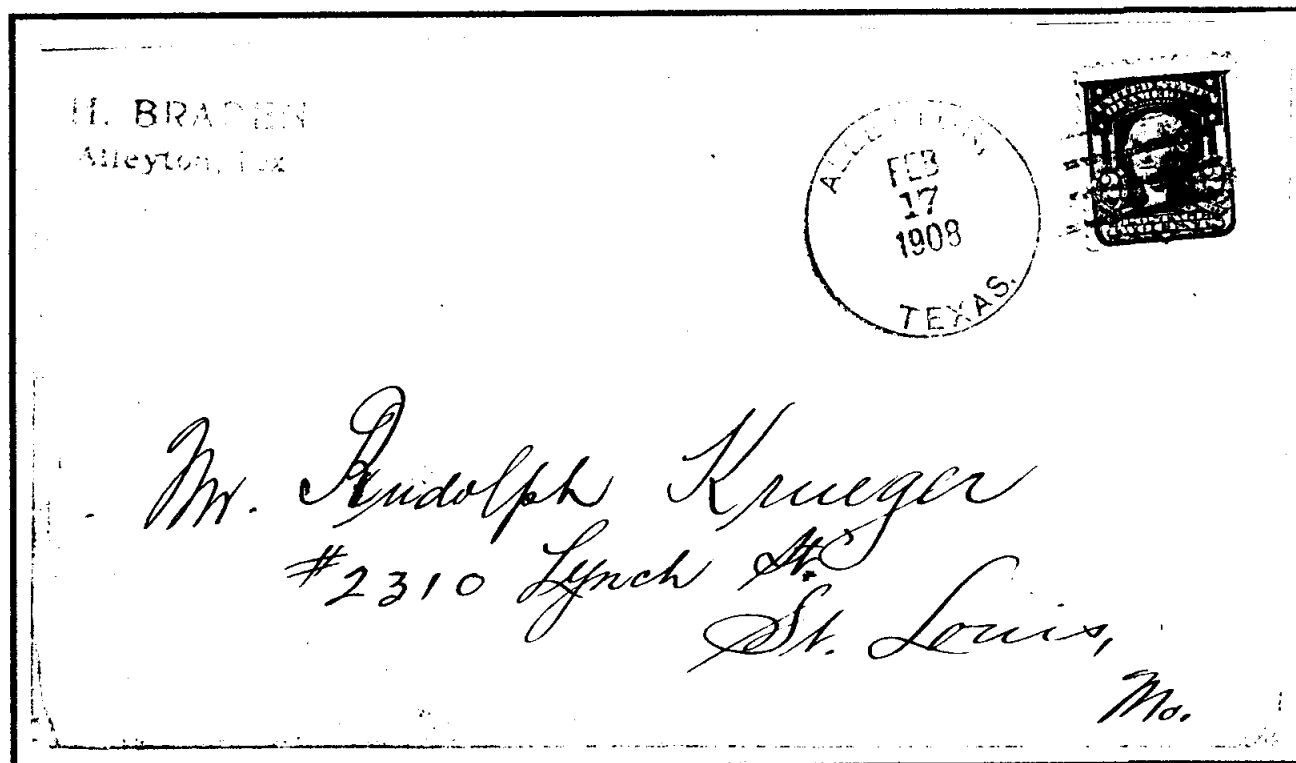 H. BRADEN
Alleyton, Tex
ALLEYTON,
FEB
17
1908
TEXAS.
UNITED STATES
Mr. Rudolph Krueger
#2310 Lynch St.
St. Louis,
Mo.